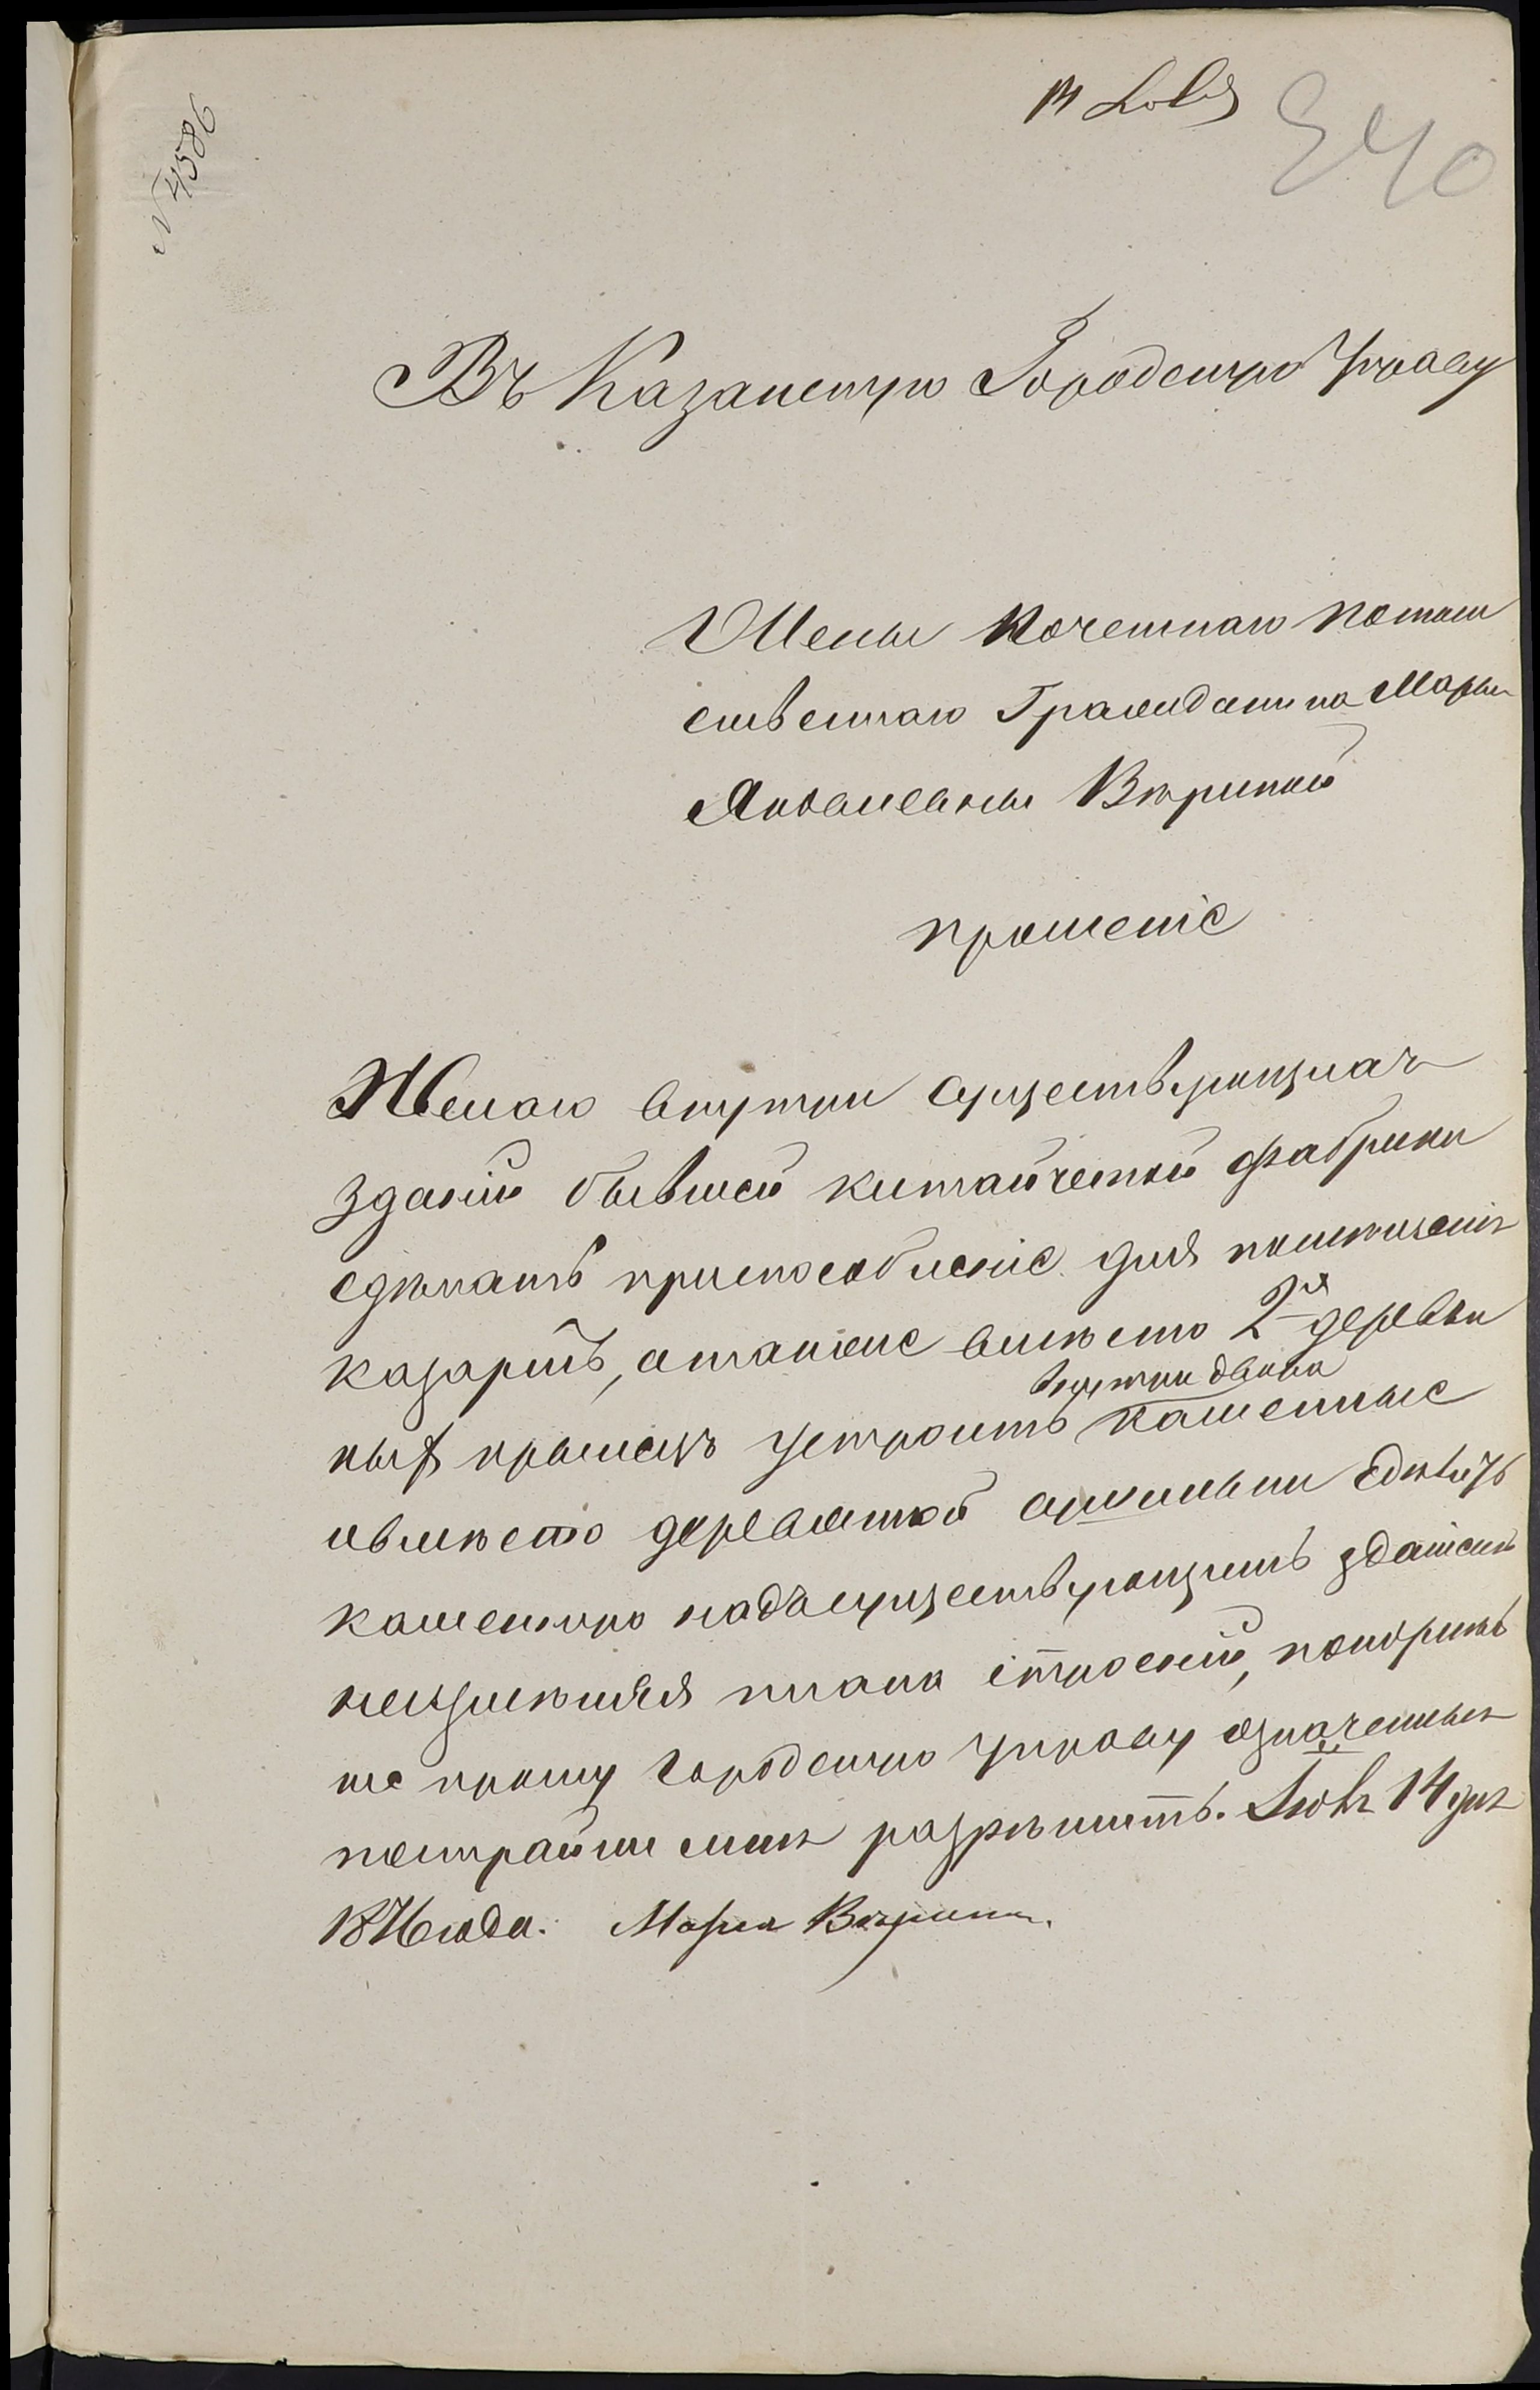 № 4586
240
Въ Казанскую Городскую Управу
Жены Почетнаго Потом
ственнаго Гражданина Марьи
Яковлевны Вѣриной
прошеніе
Желаю внутри существующихъ
зданій бывшей китаичетной фабрики
сдѣлать приспособленіе для помѣщенія
казармъ, атакже вмѣсто 2х деревян
ныхъ крылецъ устроить каменные
внутри двора
ивмѣсто деревянной сушильни сдѣлать
каменную надъ существующимъ зданіемъ
неизмѣняя плана строеній, покорнѣй
ше прошу городскую управу означенныя
постройки мнѣ разрѣшить. 14 дня
1876 года. Марья Вѣрина